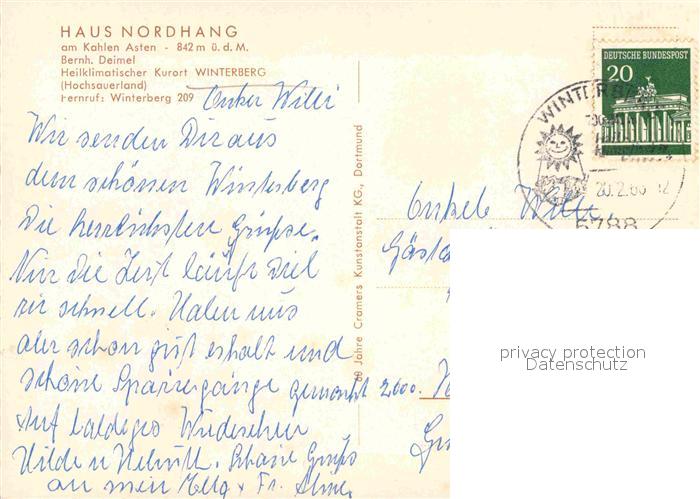 HAUS NORDHANG
am Kahlen Asten - 842 m ü. d. M.
Bernh. Deimel
Heilklimatischer Kurort WINTERBERG
(Hochsauerland)
Fernruf: Winterberg 209
Onkel Willi
Wir senden Dir aus
dem schönen Winterberg
Die herzlichsten Grüsse.
Nur die Zeit läuft viel
zu schnell. Haben uns
aber schon gut erholt und
schöne Spaziergänge gemacht
Auf baldiges Wiedersehen
Hilde u Helmuth. Schöne Grüße
an mein
60 Jahre Cramers Kunstanstalt KG., Dortmund
DEUTSCHE BUNDESPOST
20
WINTERBERG
5788
Onkel
privacy protection
Datenschutz